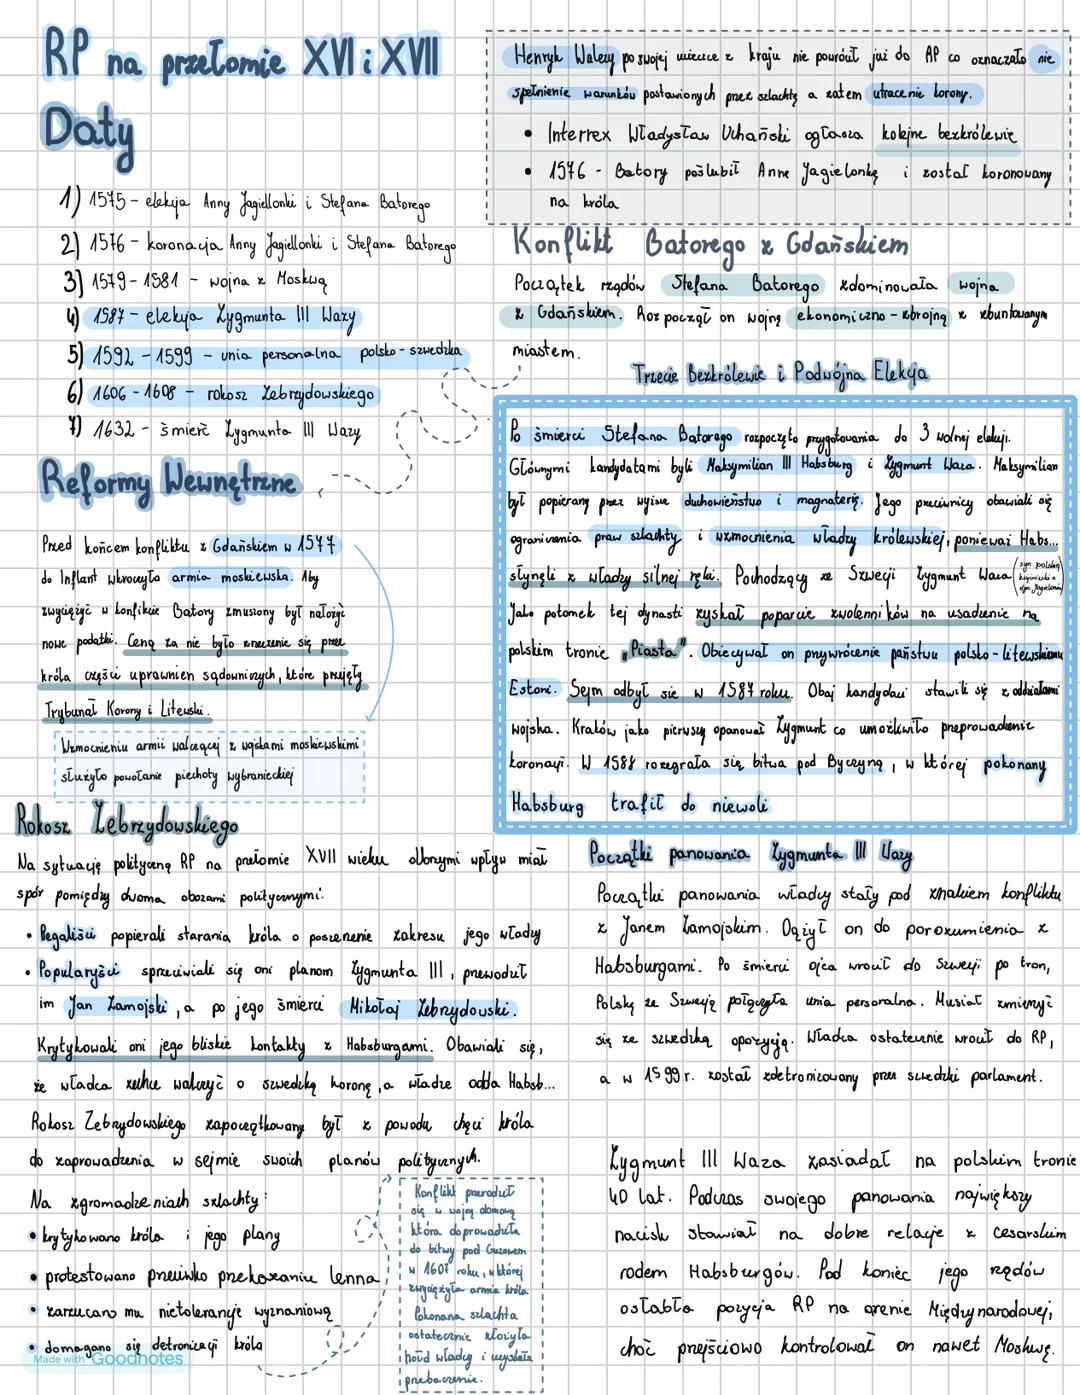 RP na przełomie XVI i XVII
Daty
1) 1575 - elekcja Anny Jagiellonki i Stefana Batorego
2) 1576 - koronacja Anny Jagiellonki i Stefana Batorego
3) 1579 - 1581 - wojna z Moskwą
4) 1587 - elekcja Zygmunta III Wazy
5) 1592 - 1599 - unia personalna polsko - szwedzka
6) 1606 - 1608 - rokosz Zebrzydowskiego
7) 1632 - śmierć Zygmunta III Wazy
Reformy Wewnętrzne
Przed końcem konfliktu z Gdańskiem w 1577
do Inflant wkroczyła armia moskiewska. Aby
zwyciężyć w konflikcie Batory zmusiony był nałożyć
nowe podatki. Ceną za nie było zrzeczenie się przez
króla części uprawnień sądowniczych, które przejęły
Trybunał Korony i Litewski.
Wzmocnieniu armii walczącej z wojskami moskiewskimi
służyło powołanie piechoty wybranieckiej
Rokosz Zebrzydowskiego
Na sytuację polityczną RP na przełomie XVII wieku olbrzymi wpływ miał
spór pomiędzy dwoma obozami politycznymi:
• Regaliści popierali starania króla o poszerzenie zakresu jego władzy
• Popularyści sprzeciwiali się oni planom Zygmunta III, przewodził
im Jan Zamojski, a po jego śmierci Mikołaj Zebrzydowski.
Krytykowali oni jego bliskie kontakty z Habsburgami. Obawiali się,
że władca zechce walczyć o szwedzką koronę, a władze odda Habsb...
Rokosz Zebrzydowskiego zapoczątkowany był z powodu chęci króla
do zaprowadzenia w sejmie swoich planów politycznych.
Na zgromadzeniach szlachty:
• krytykowano króla i jego plany
• protestowano przeciwko przekazaniu lenna
• zarzucano mu nietolerancję wyznaniową
• domagano się detronizacji króla
Made with Goodnotes
Konflikt przerodził
się w wojnę domową
która doprowadziła
do bitwy pod Guzowem
w 1607 roku, w której
zwyciężyła armia króla
Pokonana szlachta
ostatecznie złożyła
hołd władcy i uzyskała
przebaczenie.
Henryk Walezy po swojej ucieczce z kraju nie powrócił już do RP co oznaczało nie
spełnienie warunków postawionych przez szlachtę a zatem utracenie korony.
• Interrex Władysław Uchański ogłasza kolejne bezkrólewie
• 1576 - Batory poślubił Annę Jagielonkę i został koronowany
na króla
Konflikt Batorego z Gdańskiem
Początek rządów Stefana Batorego zdominowała wojna
z Gdańskiem. Rozpoczął on wojnę ekonomiczno - zbrojną z zbuntowanym
miastem.
Trzecie Bezkrólewie i Podwójna Elekcja
Po śmierci Stefana Batorego rozpoczęto przygotowania do 3 wolnej elekcji.
Głównymi kandydatami byli Maksymilian III Habsburg i Zygmunt Waza. Maksymilian
był popierany przez wyższe duchowieństwo i magnaterię. Jego przeciwnicy obawiali się
ograniczenia praw szlachty i wzmocnienia władzy królewskiej, ponieważ Habs...
słynęli z władzy silnej ręki. Pochodzący ze Szwecji Zygmunt Waza (syn polskiej księżniczki z dyn. Jagielonów)
Jako potomek tej dynasti zyskał poparcie zwolenników na usadzenie na
polskim tronie „Piasta". Obiecywał on przywrócenie państwu polsko - litewskiemu
Estoni. Sejm odbył sie w 1587 roku. Obaj kandydaci stawili się z oddziałami
wojska. Kraków jako pierwszy opanował Zygmunt co umożliwiło przeprowadzenie
koronacji. W 1588 rozegrała się bitwa pod Byczyną, w której pokonany
Habsburg trafił do niewoli
Początki panowania Zygmunta III Wazy
Początki panowania władcy stały pod znakiem konfliktu
z Janem Zamojskim. Dążył on do porozumienia z
Habsburgami. Po śmierci ojca wrócił do Szwecji po tron,
Polskę ze Szwecją połączyła unia personalna. Musiał zmierzyć
się ze szwedzką opozycją. Władca ostatecznie wrócił do RP,
a w 1599 r. został zdetronizowany przez szwedzki parlament.
Zygmunt III Waza zasiadał na polskim tronie
40 lat. Podczas swojego panowania największy
nacisk stawiał na dobre relacje z cesarskim
rodem Habsburgów. Pod koniec jego rządów
osłabła pozycja RP na arenie Międzynarodowej,
choć przejściowo kontrolował on nawet Moskwę.